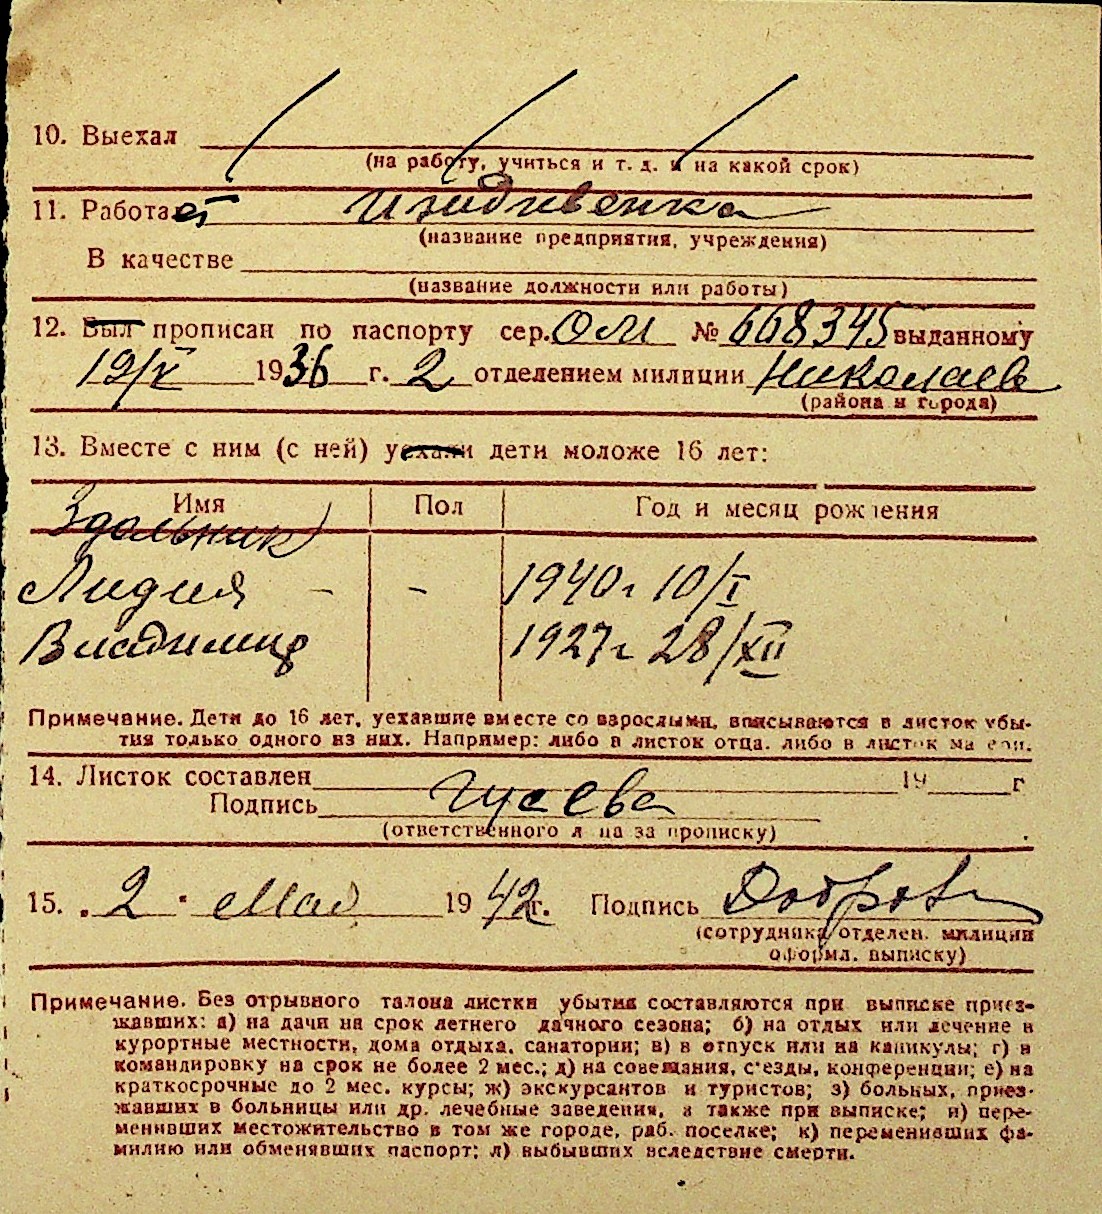 10. Выехал
(на работу, учиться и т. д. и на какой срок)
11. Работает иждивенка
(название предприятия, учреждения)
В качестве
(название должности или работы)
12. Был прописан по паспорту сер. ОМ № 668345 выданному
19/V 1936 г. 2 отделением милиции Николаев
(района и города)
13. Вместе с ним (с ней) уехали дети моложе 16 лет:
Имя Пол Год и месяц рождения
Здольник
Лидия - - 1940 г 10/I
Владимир 1927 г 28/XII
Примечание. Дети до 16 лет, уехавшие вместе со взрослыми, вписываются в листок убы-
тия только одного из них. Например: либо в листок отца, либо в листок матери.
14. Листок составлен 19 г
Подпись Гусева
(ответственного лица за прописку)
15. 2 Мая 1942 г. Подпись
(сотрудника отделен. милиции
оформл. выписку)
Примечание. Без отрывного талона листки убытия составляются при выписке приез-
жавших: а) на дачи на срок летнего дачного сезона; б) на отдых или лечение в
курортные местности, дома отдыха, санатории; в) в отпуск или на каникулы; г) в
командировку на срок не более 2 мес.; д) на совещания, с'езды, конференции; е) на
краткосрочные до 2 мес. курсы; ж) экскурсантов и туристов; з) больных, приез-
жавших в больницы или др. лечебные заведения, а также при выписке; и) пере-
менивших местожительство в том же городе, раб. поселке; к) переменивших фа-
милию или обменявших паспорт; л) выбывших вследствие смерти.